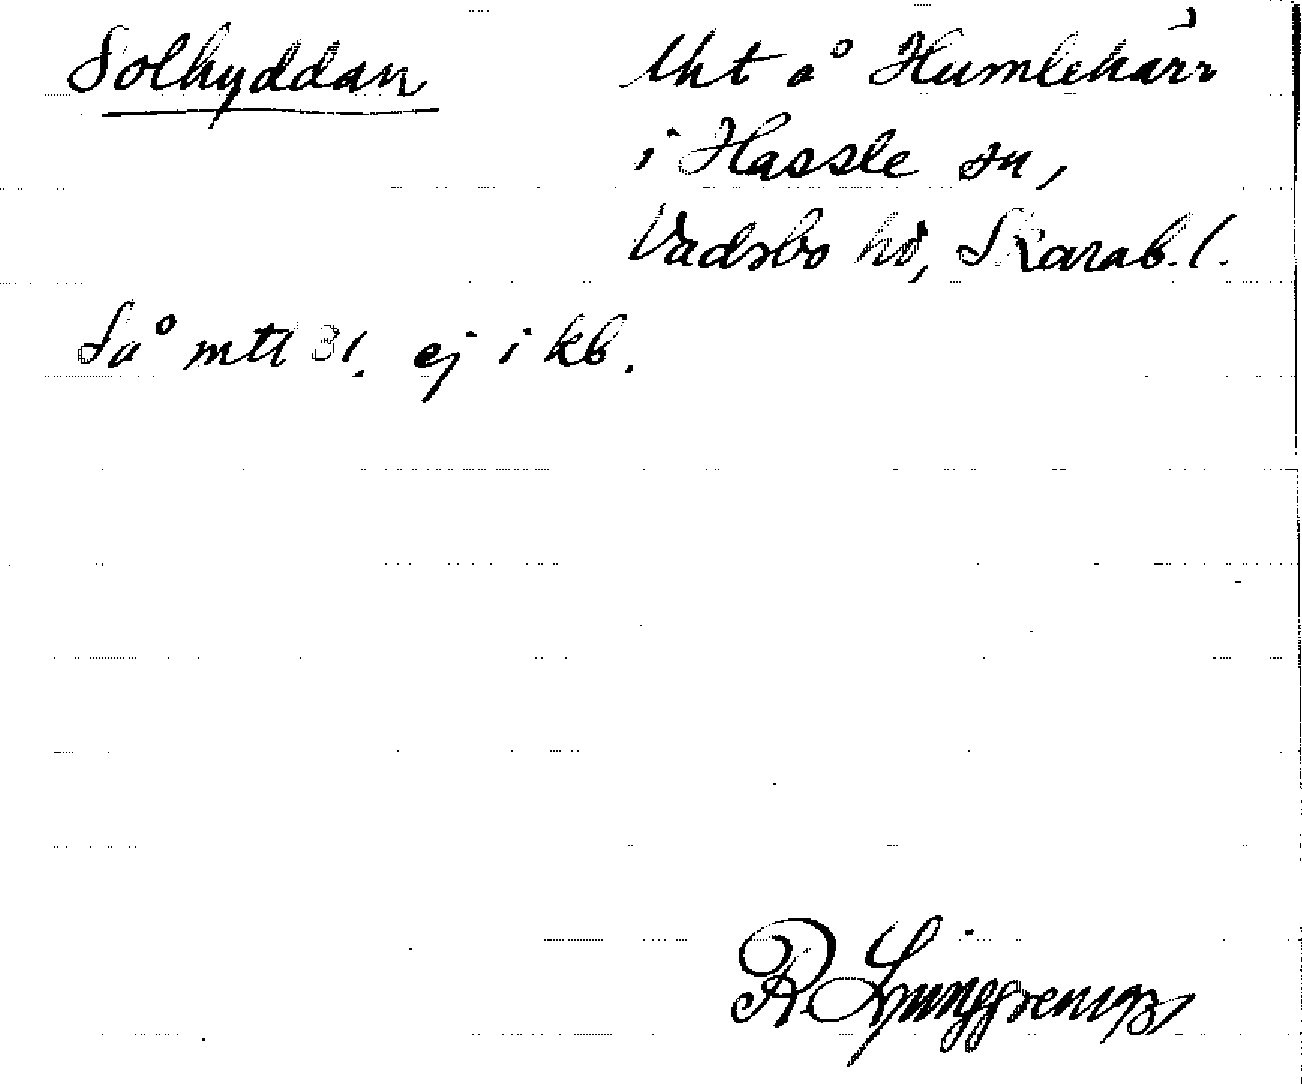 Solhyddan
Uht å Humlekärr
i Hassle sn,
Vadsbo hd, Skarab. l.
Så mtl 31. ej i kb.
R. Ljunggren